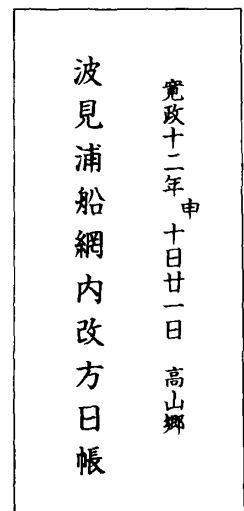 寛政十二年申十日廿一日　高山郷
波見浦船網内改方日帳